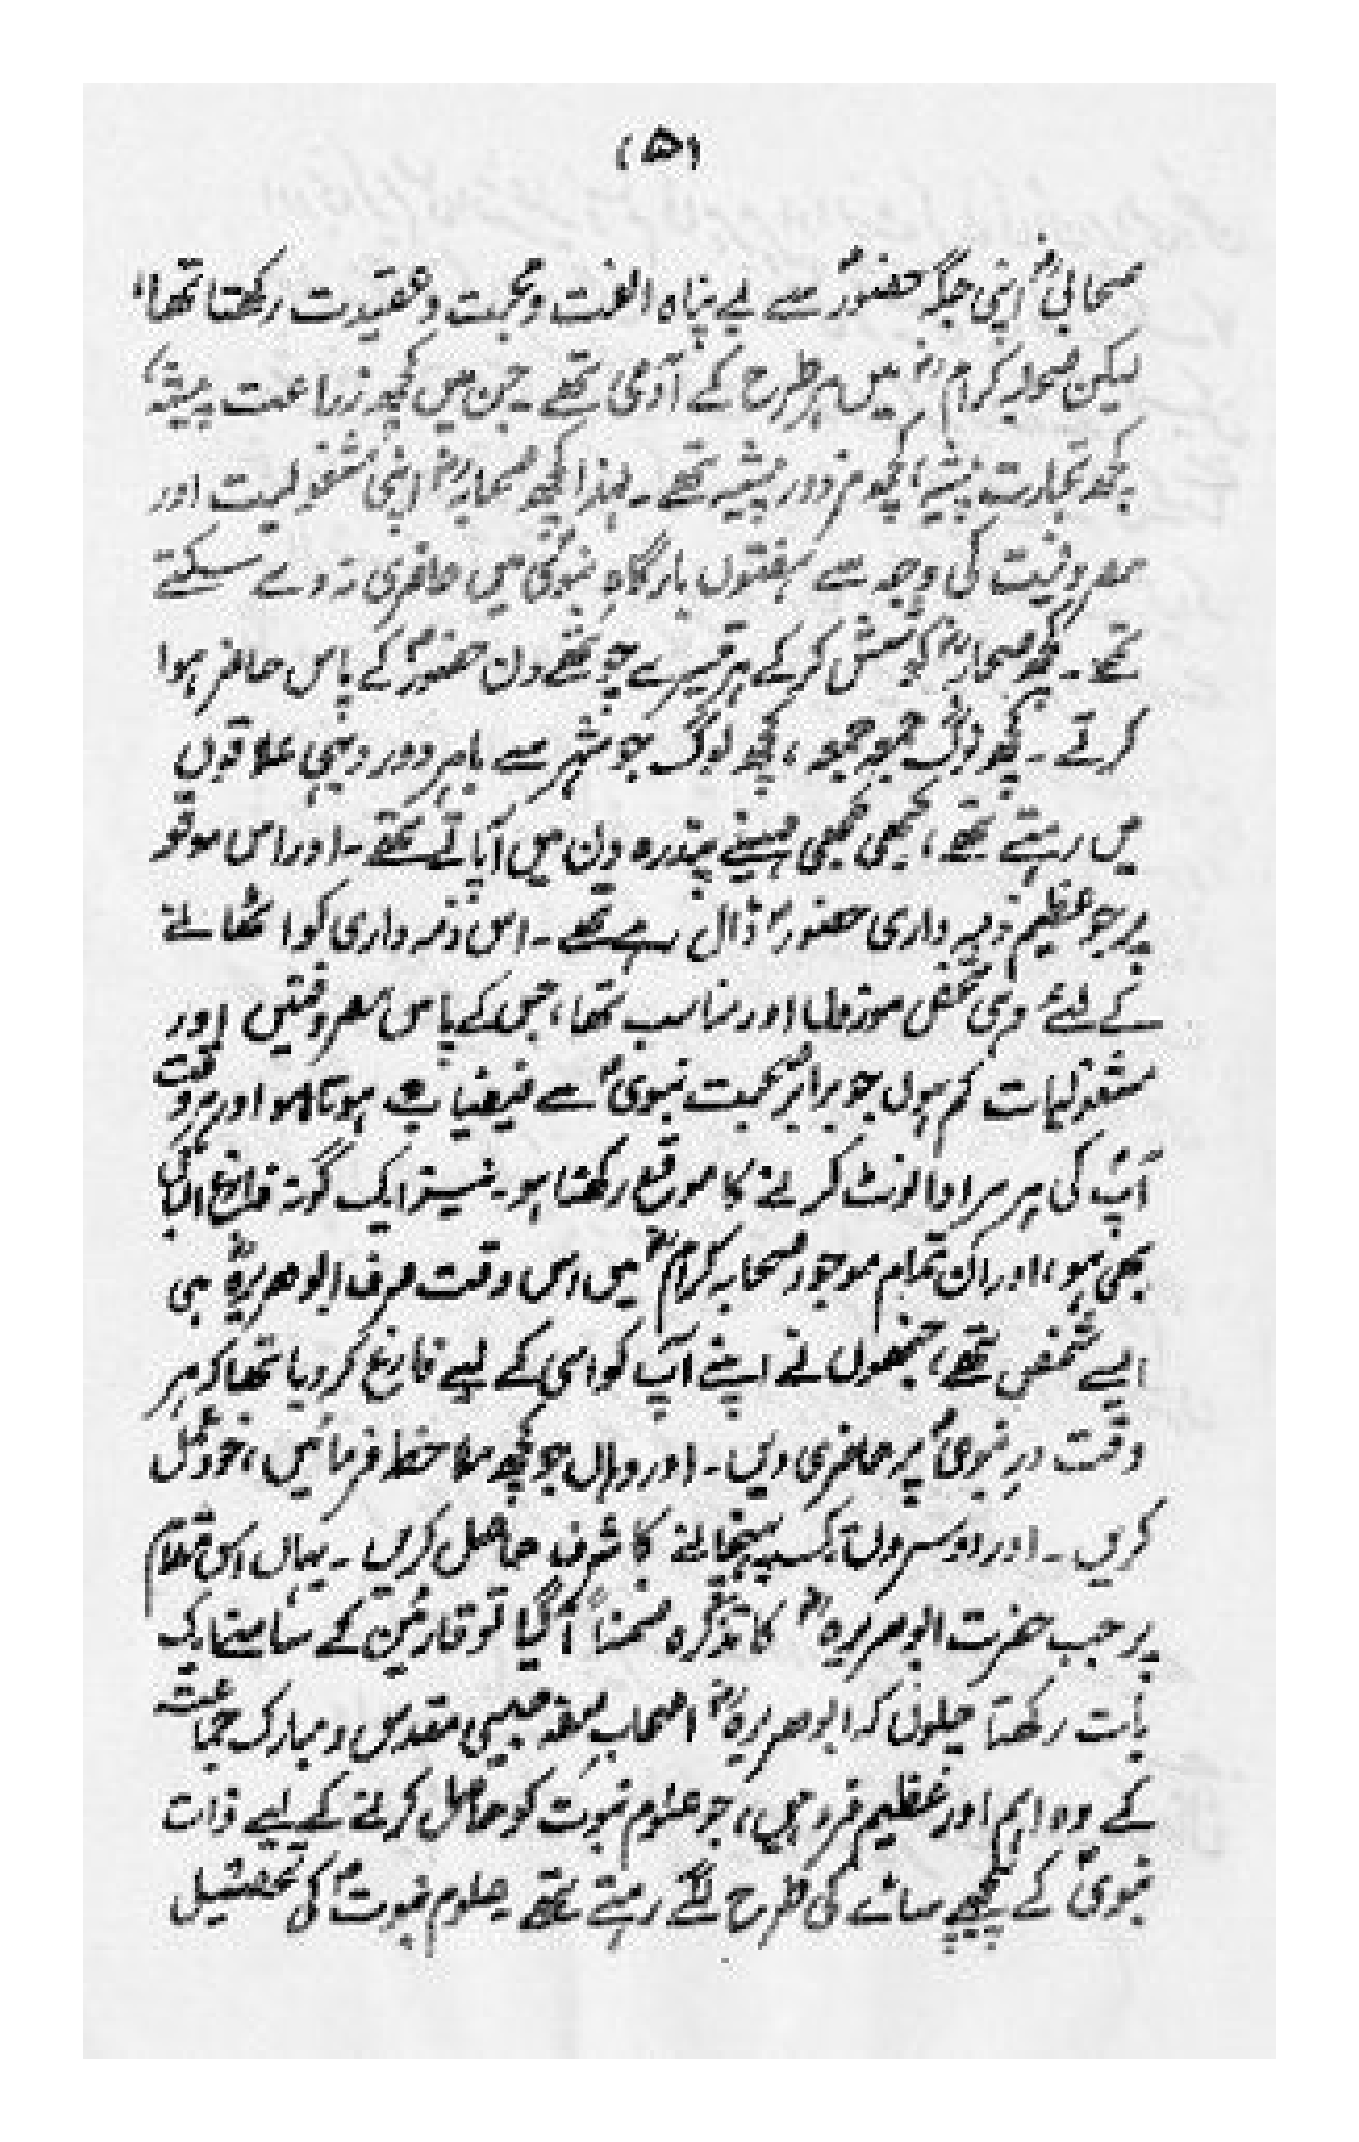 (۵)
صحابیؓ اپنی جگہ حضورؐ سے بے پناہ الفت و محبت و عقیدت رکھتا تھا،
لیکن صحابہ کرامؓ میں ہر طرح کے آدمی تھے۔ جن میں کچھ زراعت پیشہ،
کچھ تجارت پیشہ، کچھ مزدور پیشہ تھے۔ لہٰذا کچھ صحابہؓ اپنی مشغولیت اور
مصروفیت کی وجہ سے ہفتوں بارگاہِ نبویؐ میں حاضری نہ دے سکتے
تھے۔ کچھ صحابہؓ کوشش کر کے ہر تیسرے چوتھے دن حضورؐ کے پاس حاضر ہوا
کرتے۔ کچھ لوگ جمعہ جمعہ، کچھ لوگ جو شہر سے باہر دور دیہی علاقوں
میں رہتے تھے، کبھی کبھی مہینے پندرہ دن میں آپاتے تھے۔ اور اس موقع
پر جو عظیم ذمہ داری حضورؐ ڈال رہے تھے۔ اس ذمہ داری کو اٹھانے
کے لئے وہی شخص موزوں اور مناسب تھا، جس کے پاس مصروفیتیں اور
مشغولیات کم ہوں جو برابر صحبت نبویؐ سے فیضیاب ہوتا ہو اور ہر وقت
آپؐ کی ہر ہر ادا نوٹ کرنے کا موقع رکھتا ہو۔ نیز ایک گونہ فارغ البال
بھی ہو، اور ان تمام موجود صحابہ کرامؓ میں اس وقت صرف ابوھریرہؓ ہی
ایسے شخص تھے، جنھوں نے اپنے آپ کو اسی کے لیے فارغ کر دیا تھا کہ ہر
وقت درِ نبویؐ پر حاضری دیں۔ اور وہاں جو کچھ ملاحظہ فرمائیں، خود عمل
کریں۔ اور دوسروں تک پہنچانے کا شرف حاصل کریں۔ یہاں اس مقام
پر جب حضرت ابوھریرہؓ کا تذکرہ ضمناً آگیا تو قارئین کے سامنے ایک
بات رکھتا چلوں کہ ابوھریرہؓ اصحابِ صفہ جیسی مقدس و مبارک جماعت
کے وہ اہم اور عظیم فرد ہیں، جو علوم نبوت کو حاصل کرنے کے لیے ذات
نبویؐ کے پیچھے سائے کی طرح لگے رہتے تھے علوم نبوتؐ کی تحصیل